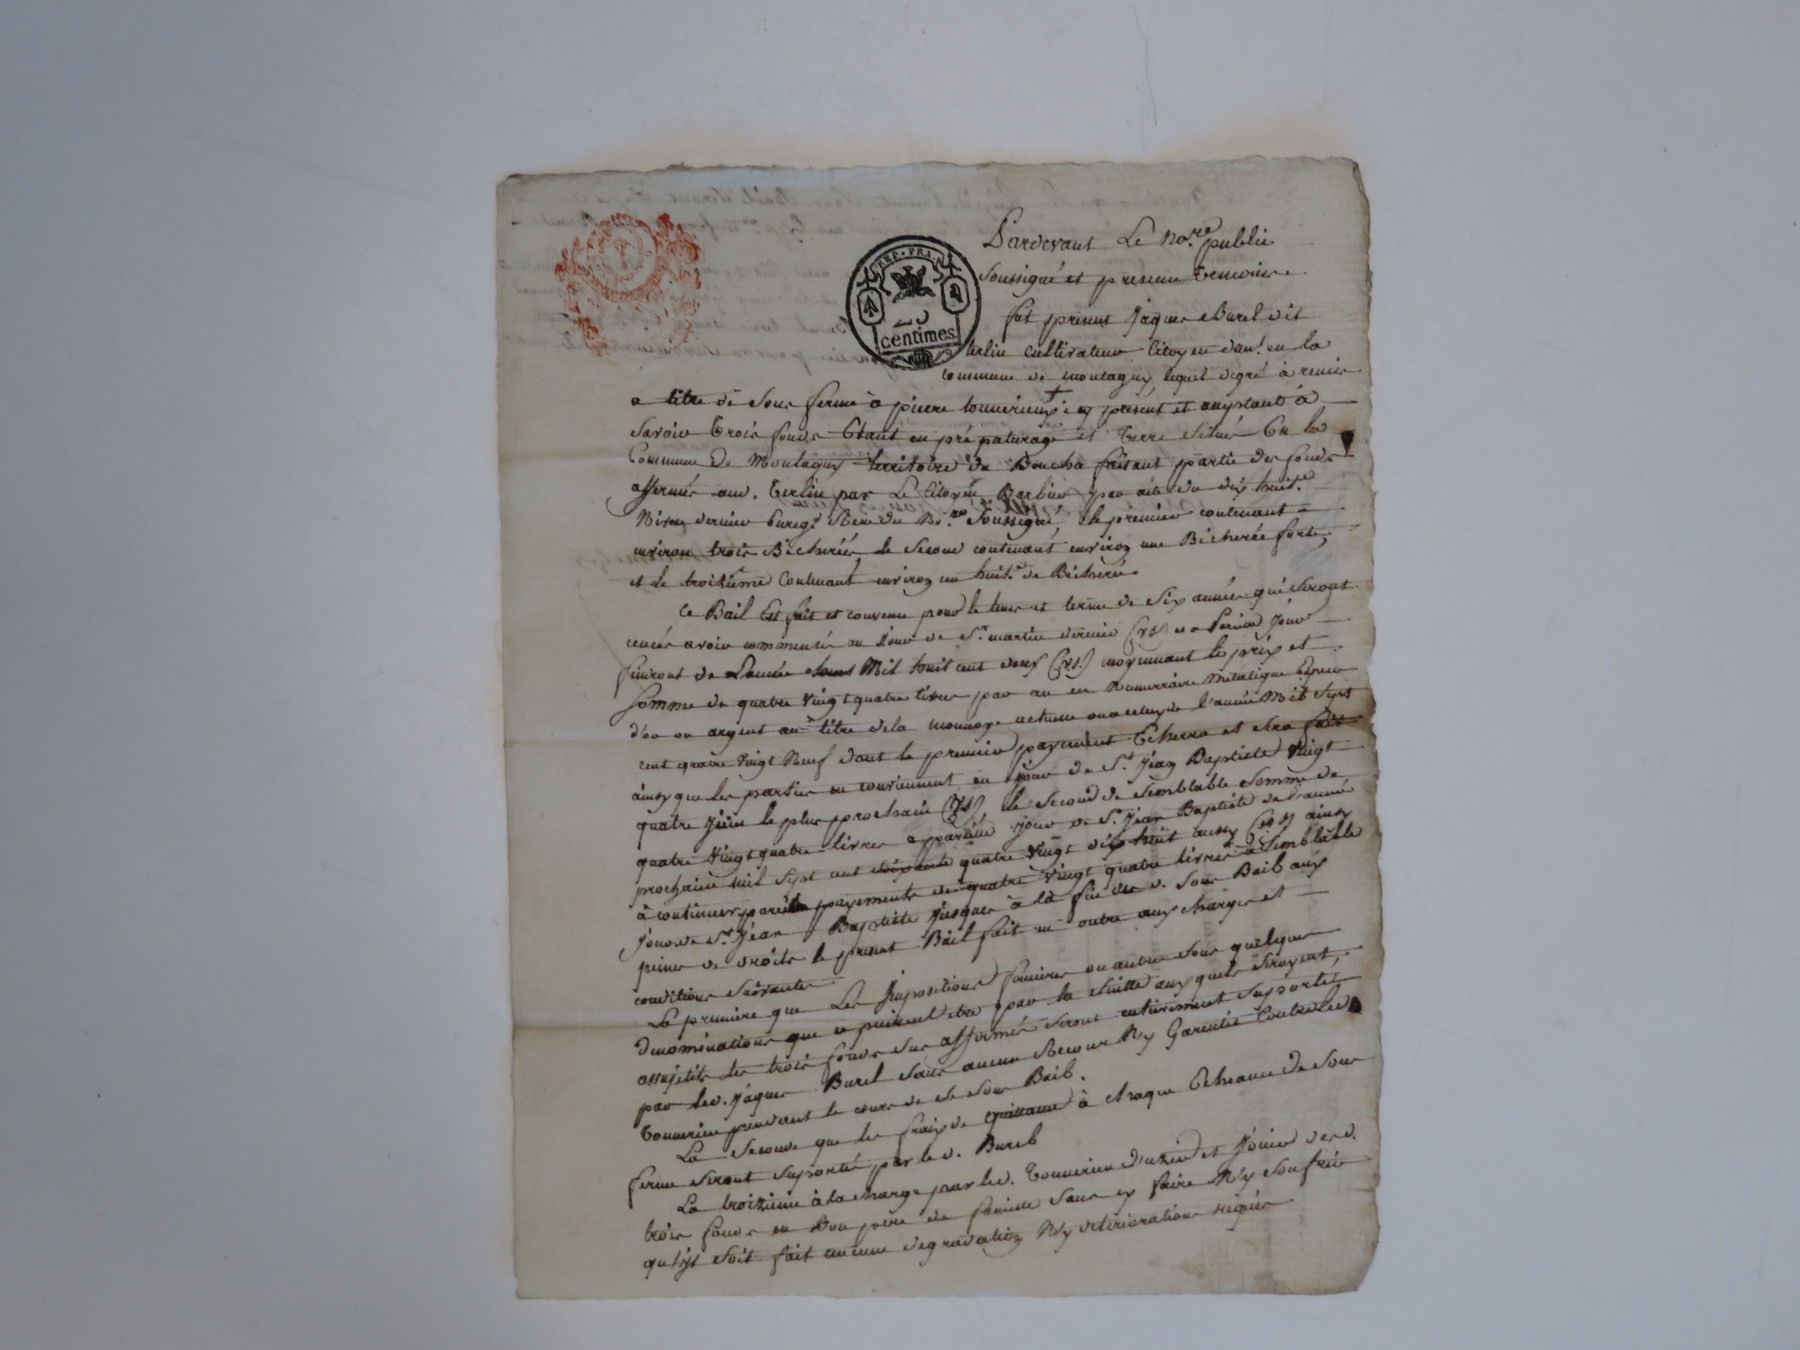 REP. FRA.
25
centimes
Pardevant Le no.re public
Soussigné et presens temoins
fut present Jâques Burel dit
terlin cultivateur Citoyen dem.t en la
commune de montagny lequel degré à remis
a titre de sous ferme à pierre tonnerieux icy présent et acceptant à
Savoir trois fonds Etant en pré paturage et Terre situés En la
Commune de Montagny territoire du Boucha faisant partie des fonds
affermés aud. terlin par Le Citoyen Barbier par acte du dix huit.e
Nivose dernier Enreg.é Reçu du No.re Soussigné, le premier contenant
environ trois Bicherées le Second contenant environ une Bicherée forte,
et le troizième Contenant environ un huit.e de Bicherée.
Ce Bail Est fait et convenu pour le tems et terme de Six années qui seront
censés avoir commencés au jour de S.t martin dernier (vs) et a Pareil Jour
finiront de L'année Mil huit cent deux (vs.) moyennant le prix et
Somme de quatre vingt quatre livres par an en Numerraire métalique Espece
d'or ou argent au titre de la monnoye actuelle ou a celuy de l'année Mil Sept
cent quatre vingt Neuf dont le premier payement Echerra et sera fait
ainsy que les parties en conviennent au jour de S.t Jean Baptiste vingt
quatre Juin le plus prochain (vs), le Second de Semblable Somme de
quatre vingt quatre livres a pareil jour de S.t Jean Baptiste de l'année
prochaine mil Sept cent quatre vingt dix huit aussy (vs) ainsy
à continuer pareils payements de quatre vingt quatre livres à Semblable
Jour de S.t Jean Baptiste Jusques à la fin du d. Sous Bail aux
peines de droits le present Bail fait en outre aux charges et
conditions Suivantes
La première que Les Impositions foncières ou autres Sous quelques
denominations que ce puissent etre par la Suitte aux quels seroyent,
assujetits les trois fonds sus affermés seront entierement Suportés
par led. Jâques Burel sans aucun Recour Ny Garentie Contre led.
Tonnerieu pendant le cours de ce Sous Bail.
La Seconde que les fraix de quittance à chaque Echeance de Sous
ferme Seront Suportés par le d. Burel
La troizieme à la charge par led. Tonnerieu d'uzer et Jouir des d.
trois fonds en Bon père de famille Sans y faire Ny Soufrir
qu'il soit fait aucune degradation Ny déterioration